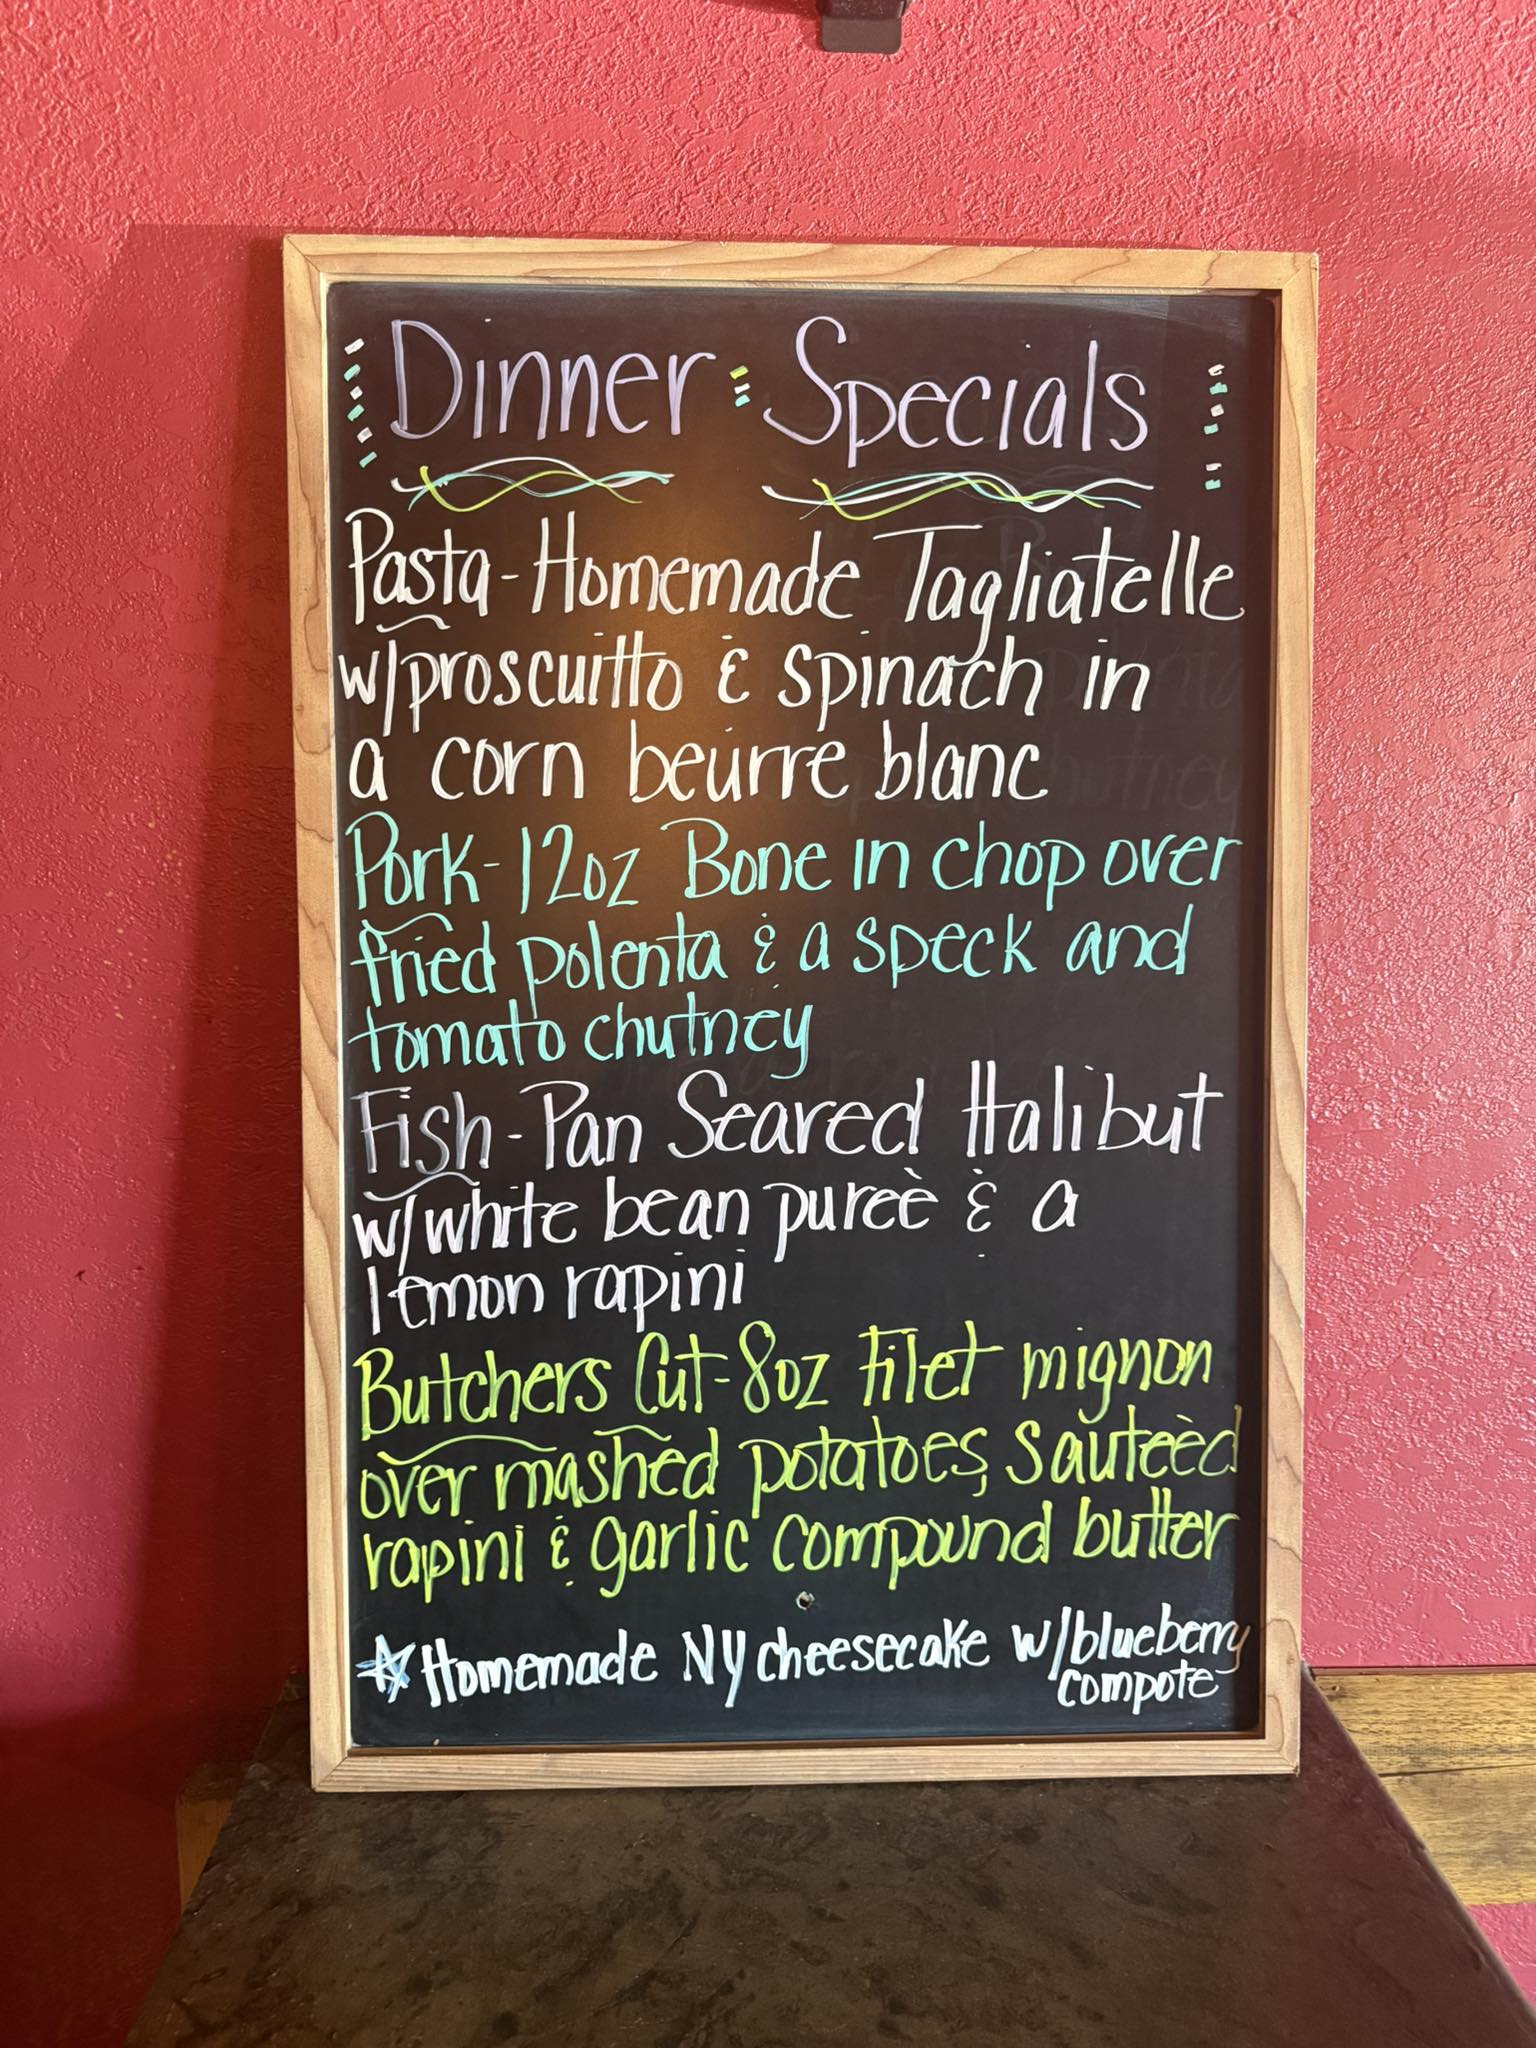 Dinner Specials
Pasta - Homemade Tagliatelle
w/proscuitto & spinach in
a corn beurre blanc
Pork - 12oz Bone in chop over
fried polenta & a speck and
tomato chutney
Fish - Pan Seared Halibut
w/white bean pureè & a
lemon rapini
Butchers Cut - 8oz Filet mignon
over mashed potatoes, sauteèd
rapini & garlic compound butter
☆ Homemade NY cheesecake w/blueberry
compote